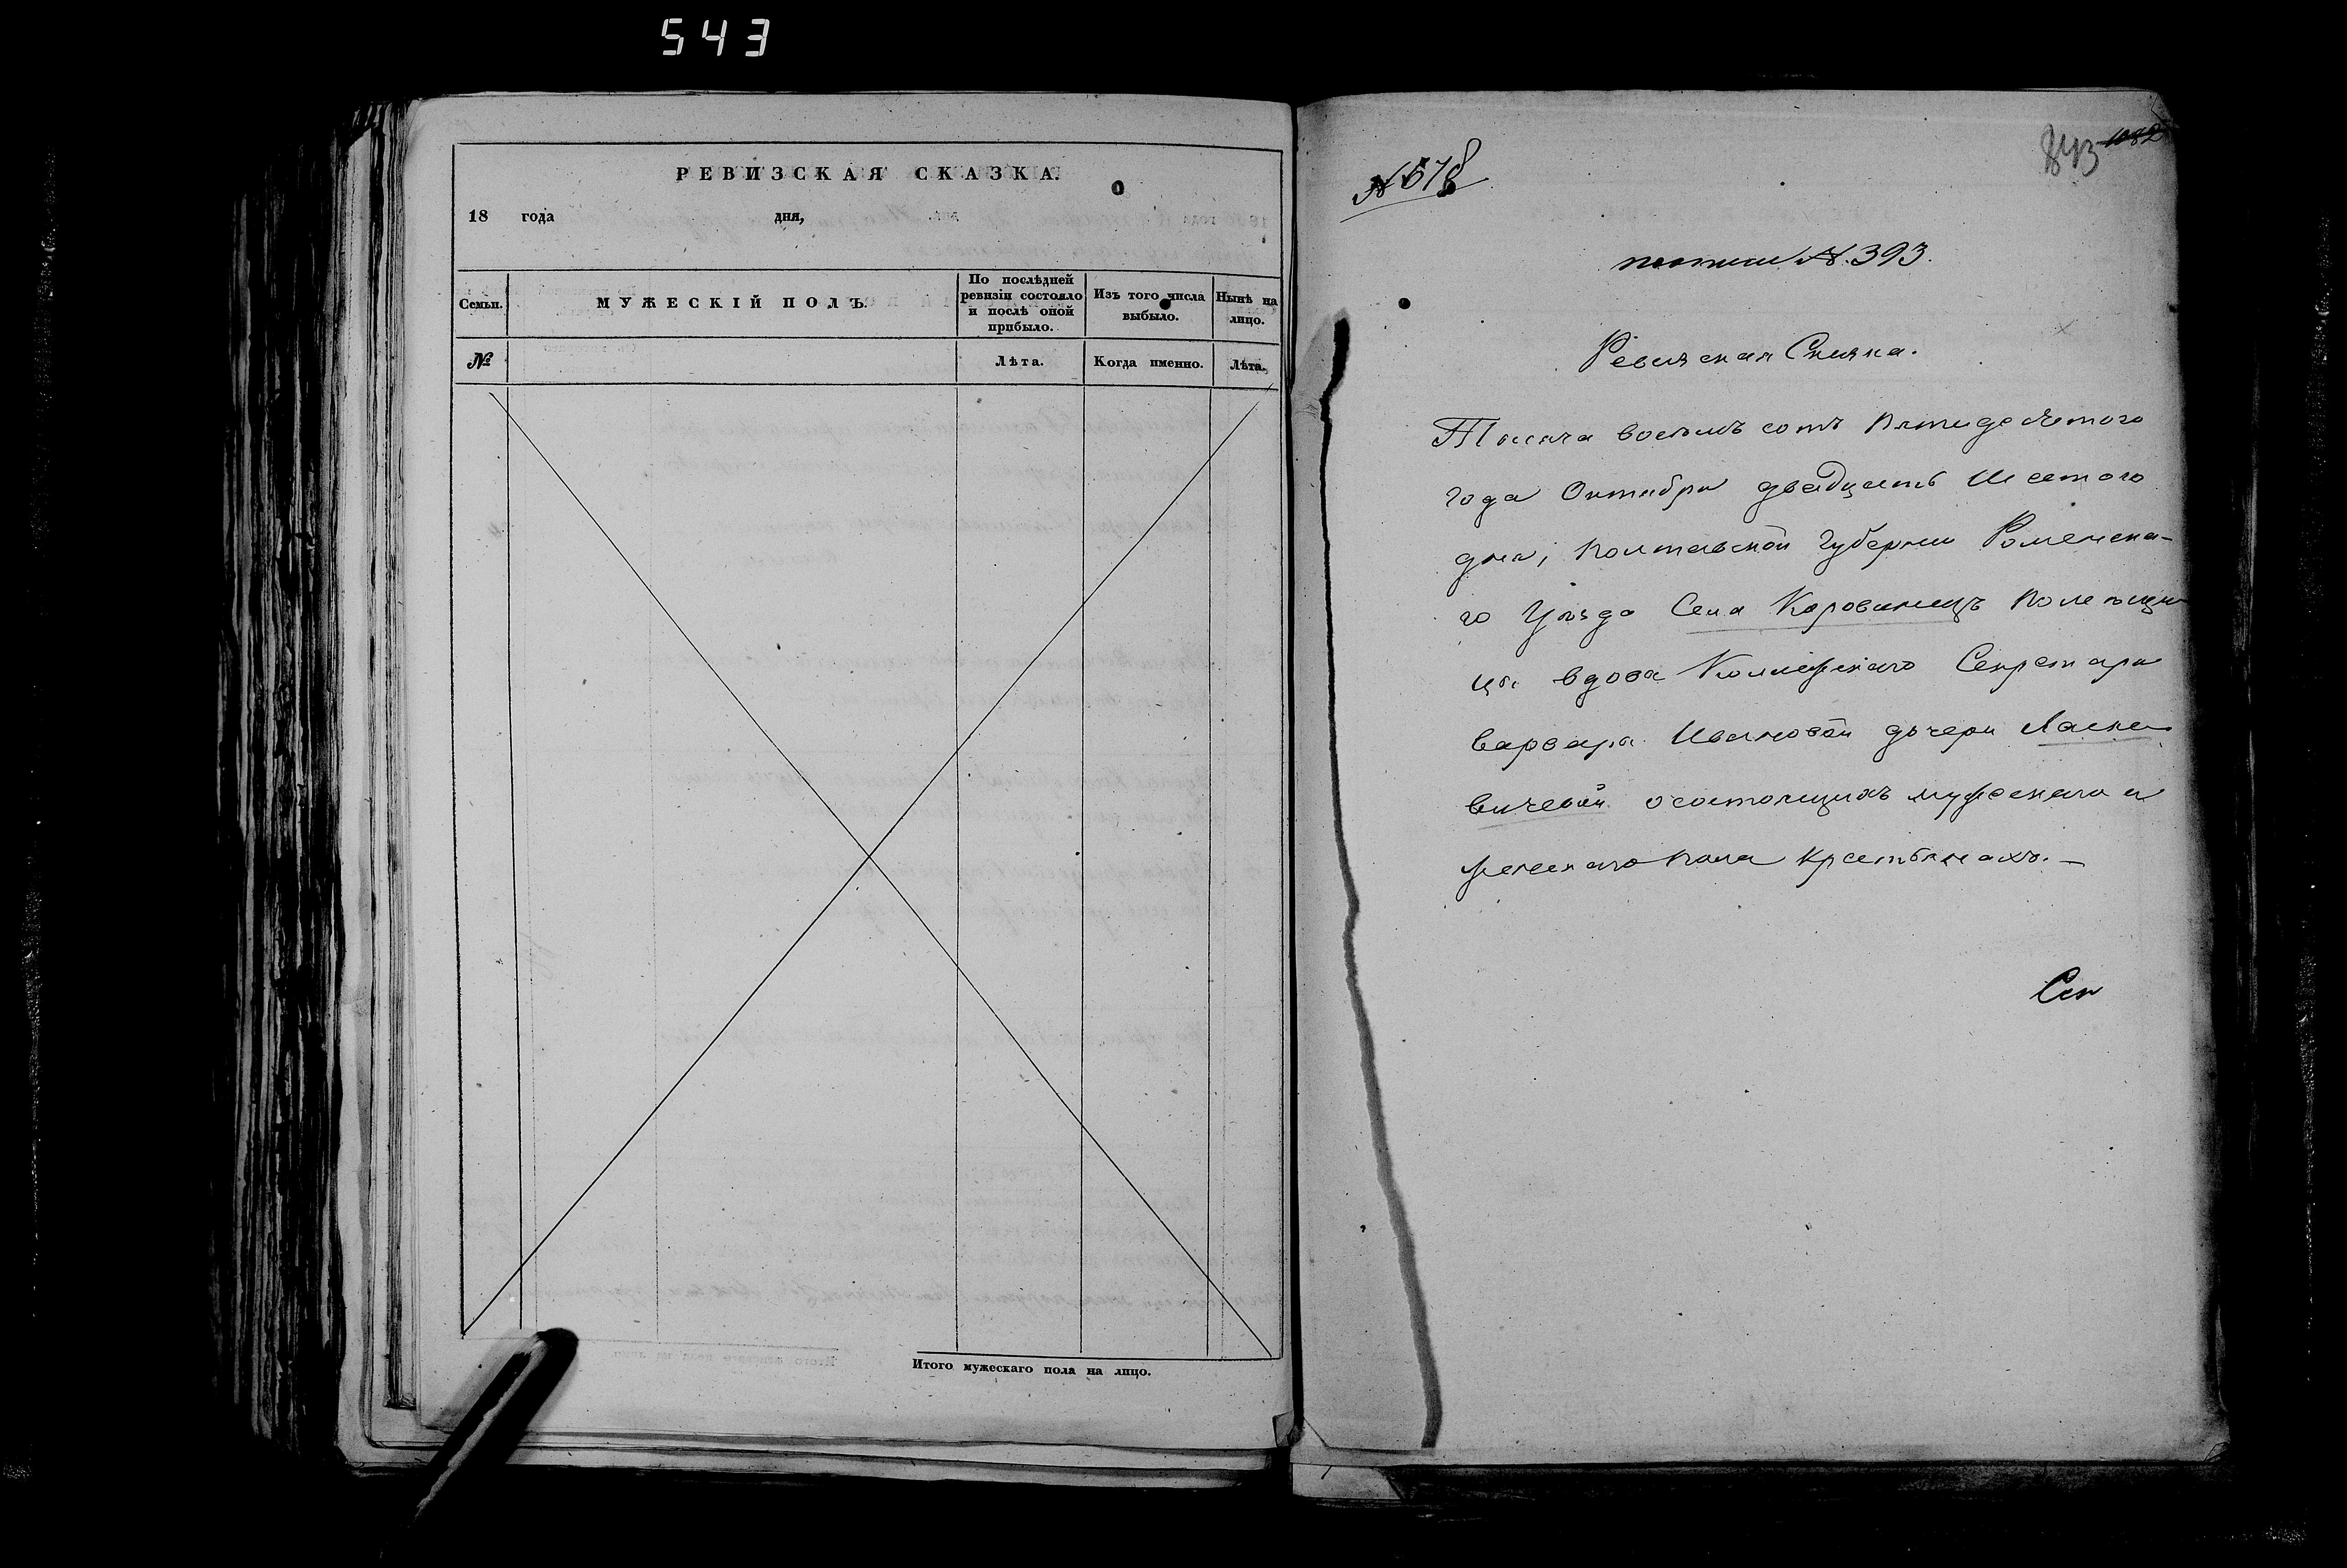 543
РЕВИЗСКАЯ СКАЗКА.
18 года дня,
Семьи.
МУЖЕСКІЙ ПОЛЪ.
По послѣдней ревизіи состояло и послѣ оной прибыло.
Изъ того числа выбыло.
Нынѣ на лицо.
№
Лѣта.
Когда именно.
Лѣта.
Итого мужескаго пола на лицо.
№ 678
843 1082
почтии №. 393.
Ревизская Сказка.
Тысяча восемь сотъ Пятидесятого
года Октября двадцать Шестого
дня, Полтавской Губернии Роменска-
го Уѣзда Села Коровинецъ Помѣщи
цы вдова Колежскаго Секретаря
Варвара Ивановой дочери Ласке
вичевой о состоящихъ мужескаго и
женскаго пола крестьянахъ. —
Сен